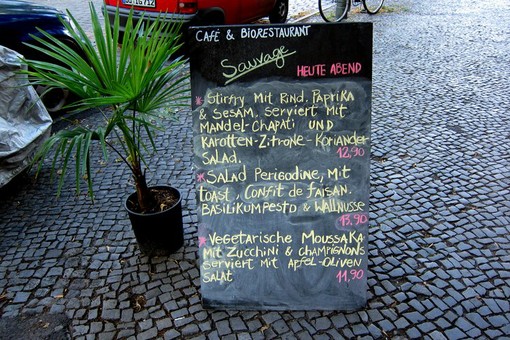 CAFÉ & BIORESTAURANT
Sauvage
HEUTE ABEND
* Stirfry Mit Rind, Paprika
& Sesam, serviert Mit
Mandel-Chapati UND
Karotten-Zitrone-Koriander
Salad.
12,90
* Salad Perigodine, Mit
toast, Confit de faisan.
Basilikumpesto & Wallnusse
13,90
* Vegetarische Moussaka
Mit Zucchini & Champignons
serviert Mit Apfel-Oliven
Salat
11,90